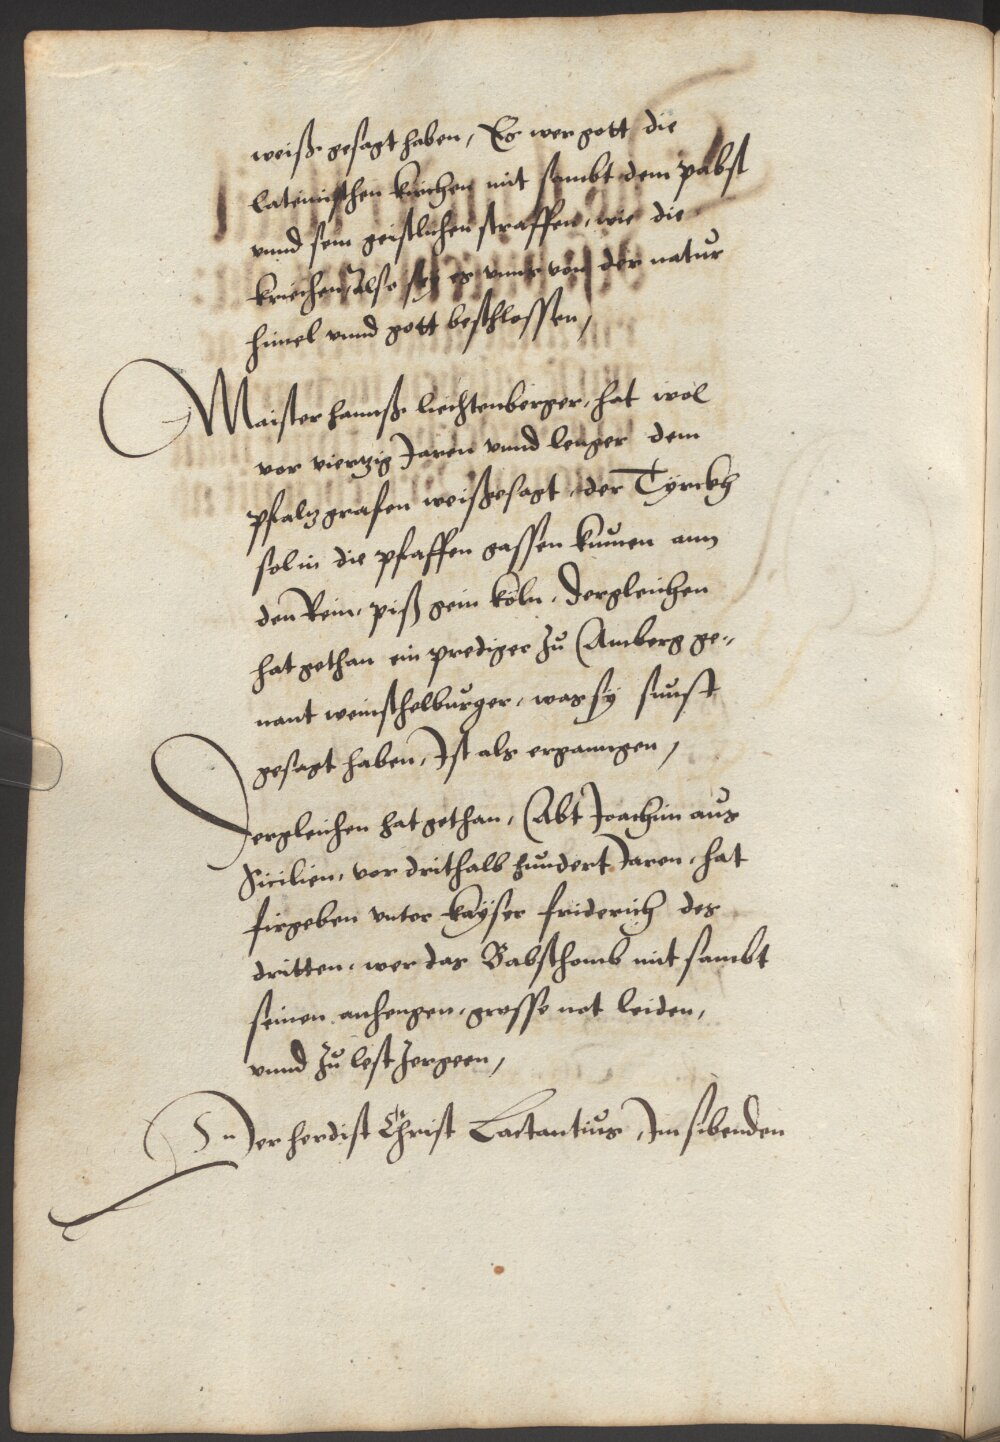 weiß gesagt haben, Es wer gott die
lateinischen kirchen mit sambt dem pabst
vnnd sein geistlichen straffen, wie die
kriechen, Also sey es von der natur
himel vnnd gott beschlossen,
Maister hannß liechtenberger, hat wol
vor viertzig Jaren vnnd lenger dem
pfaltzgrafen weißgesagt, der Tyrckh
sol in die pfaffen gassen kumen ann
den Rein, piß gein Köln, Dergleichen
hat gethan ein prediger zu Amberg ge-,
nant weinschelburger, was sy sunst
gesagt haben, Ist als erganngen,
Dergleichen hat gethan, Abt Joachim aus
Sicilien, vor drithalb hundert Jaren, hat
firgeben vnter kayser friderich des
dritten, wer das Babsthomb mit sambt
seinen anhengen, grosse not leiden,
vnnd zu lest zergeen,
Der herdist Christ Lactantius, Im sibenden